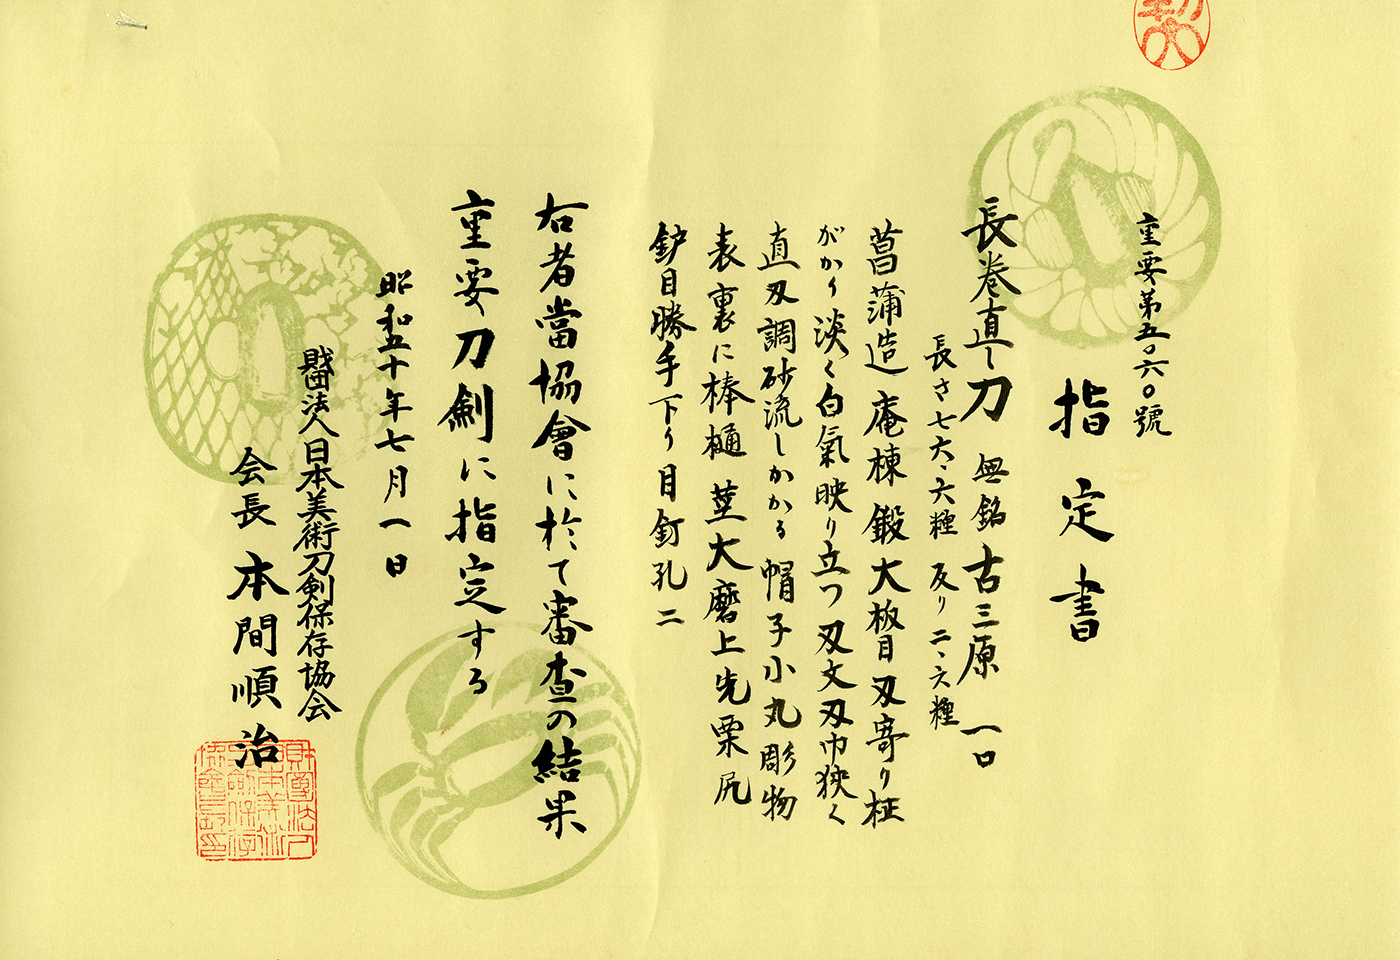 重要第五〇六〇號
指定書
長巻直し刀 無銘 古三原 一口
長さ七六、六糎 反り二、六糎
菖蒲造 庵棟 鍛大板目刃寄り柾
がかり淡く白氣映り立つ 刃文刃巾狭く
直刃調砂流しかかる 帽子小丸 彫物
表裏に棒樋 茎大磨上先栗尻
鈩目勝手下り目釘孔二
右者當協會に於て審査の結果
重要刀剣に指定する
昭和五十年七月一日
財団法人日本美術刀剣保存協会
会長 本間順治